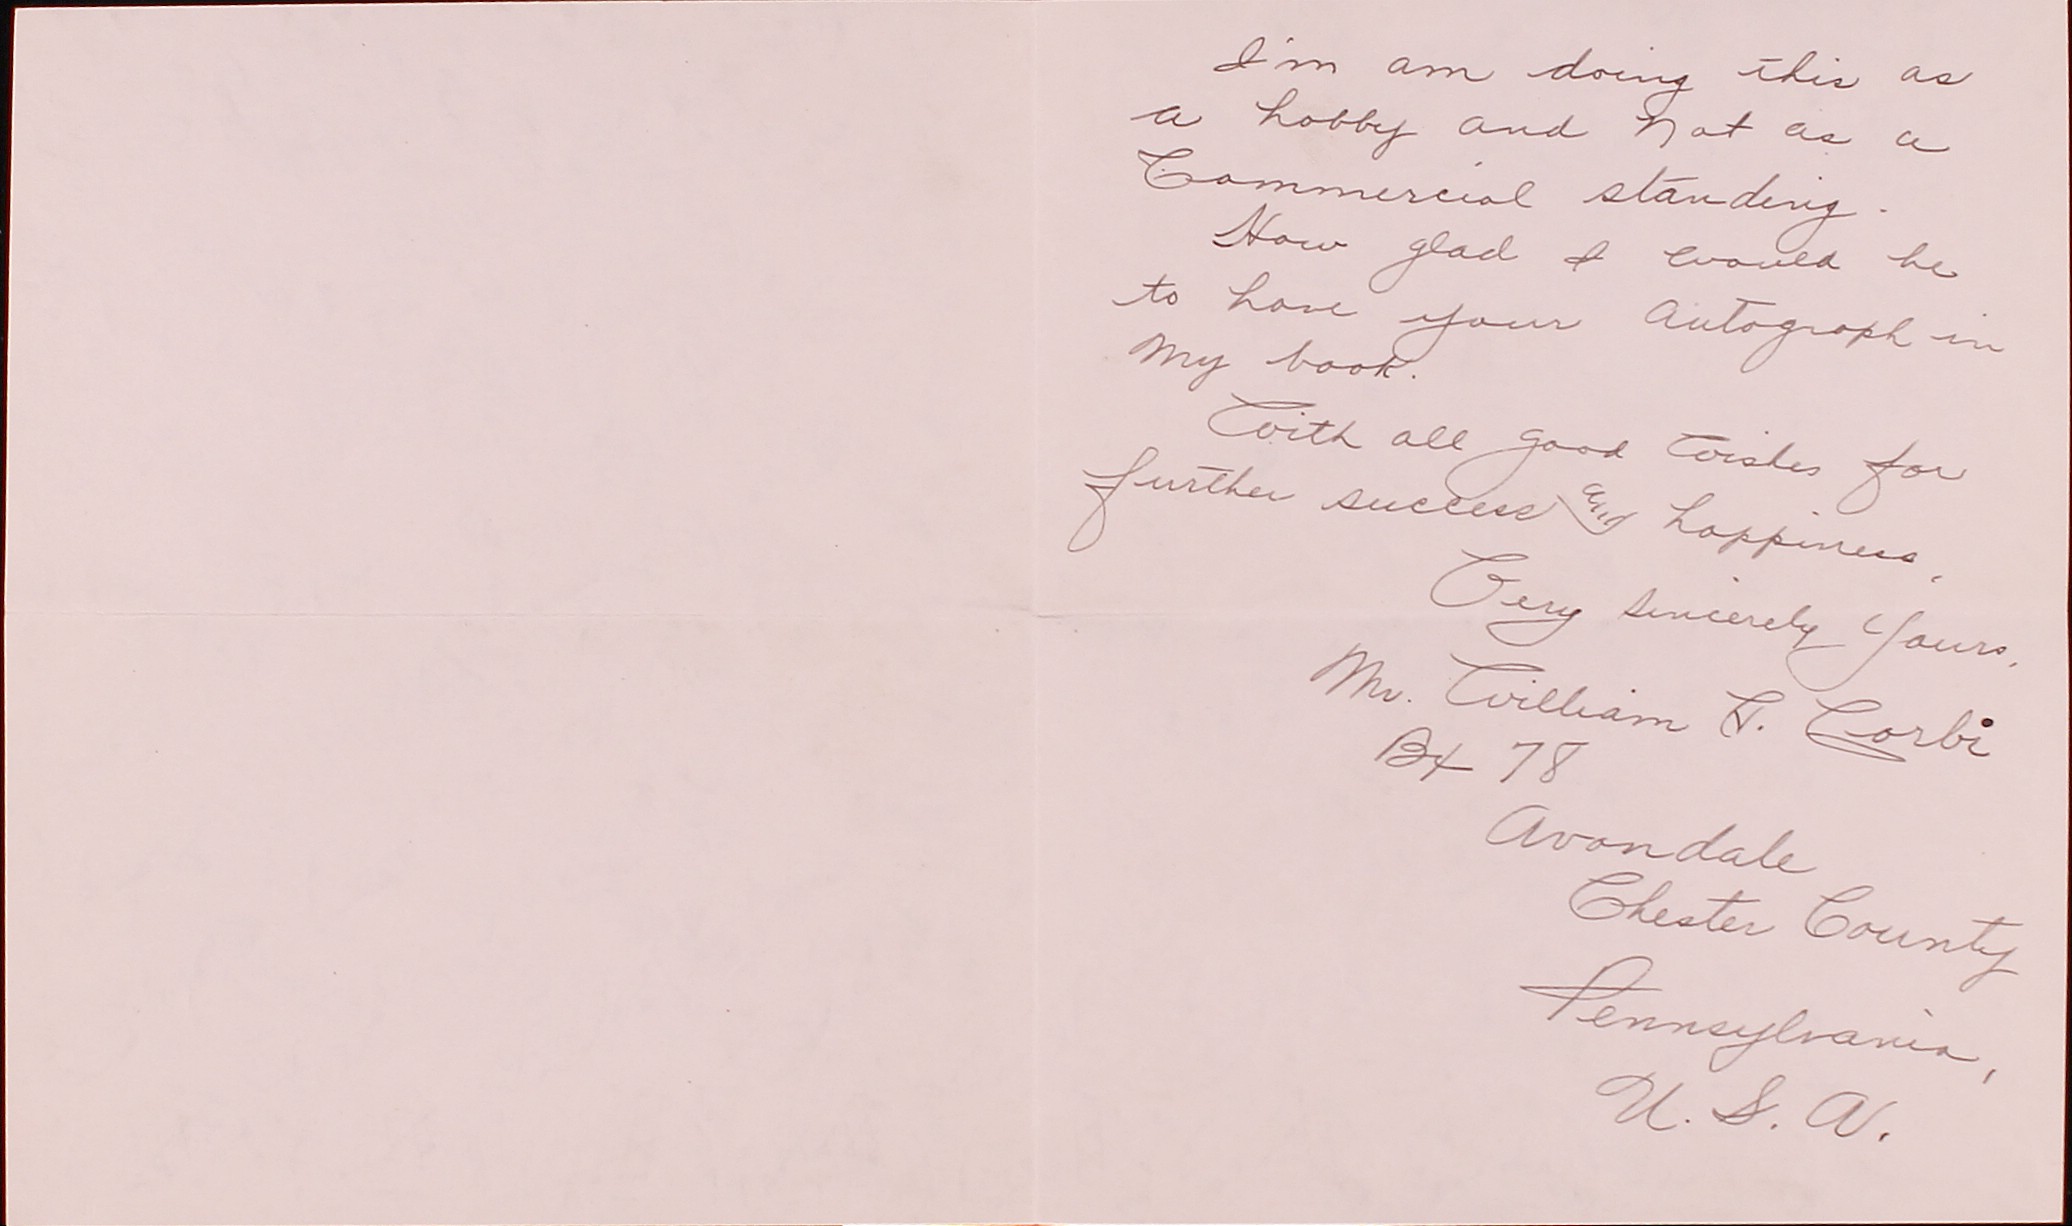 I'm am doing this as
a hobby and not as a
Commercial standing.
How glad I would be
to have your autograph in
My book.
With all good wishes for
further success and happiness,
Very sincerely Yours,
Mr. William G. Corbi
Bx 78
Avondale
Chester County
Pennsylvania,
U. S. A.